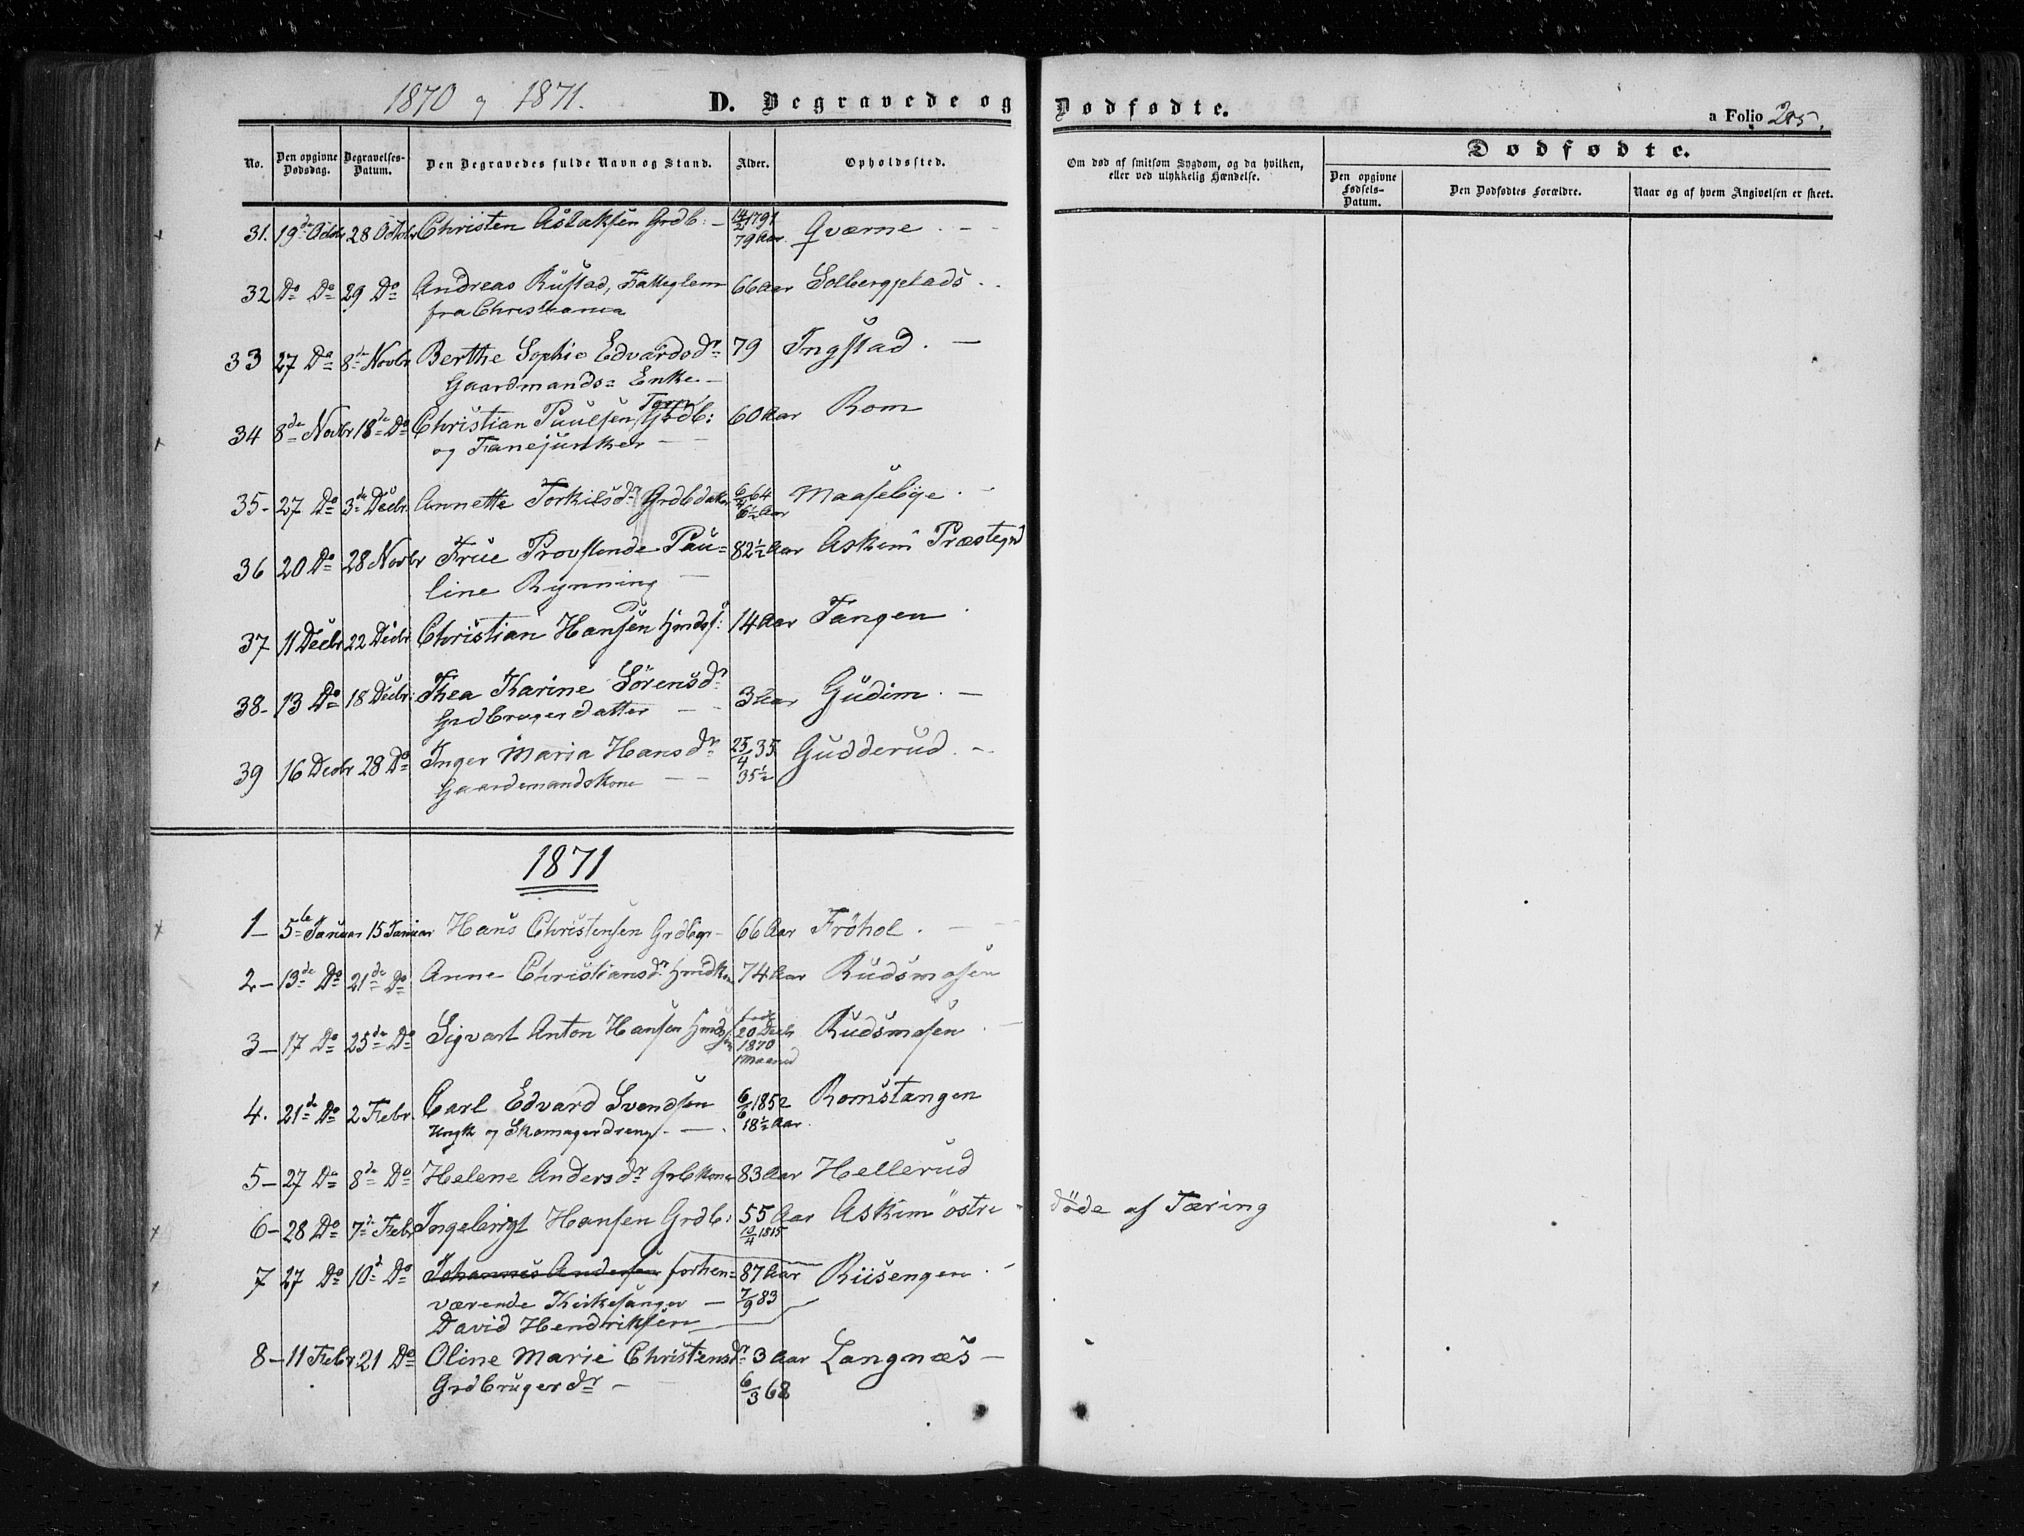 1870 og 1871.
D. Begravede og Dødfødte.
a Folio 205.
No. Den opgivne Dødsdag. Begravelses-Datum. Den Begravedes fulde Navn og Stand. Alder. Opholdssted. Om død af smitsom Sygdom, og da hvilken, eller ved ulykkelig Hændelse. Dødfødte.
Den opgivne Fødsels-Datum. Den Dødfødtes Forældre. Naar og af hvem Angivelsen er skeet.
31. 19de Octbr 28 Octbr Christen Aslaksen Grdb. 1791 Qværne
79 Aar
32 Do Do 29 Do Andreas Rustad, Fatteglem 66 Aar Solbergplads
fra Christiania
33 27 Do 8de Novbr Berthe Sophie Edvardsdr 79 Ingstad
Gaardmands= Enke
34 8de Novbr 18de Do Christian Paulsen Torp Grdb: 60 Aar Rom
og Fanejunker
35 27 Do 3de Decbr Annette Torkilsdr Grdbdatter 64 Maaseløye
6½ Aar
36 20 Do 28 Novbr Frue Provstende Pau= 82½ Aar Askim Præstegd
line Rynning
37 11 Decbr 22 Decbr Christian Hansen Hmdss: 14 Aar Tangen
38 13 Do 18 Decbr: Thea Karine Sørensdr 3 Aar Gudim
Grdbrugerdatter
39 16 Decbr 28 Do Inger Maria Hansdr 25/4 35 Gudderud
Gaardemandskone 35½
1871
1 5te Januar 15 Januar Hans Christensen Grdbgr 66 Aar Frøhol
2 13de Do 21de Do Anne Christiansdr Hmdkon 74 Aar Rudsmosen
3 17 Do 25de Do Sigvart Anton Hansen Hmds født Rudsmosen
20 Decbr
1870
1 Maaned
4. 21de Do 2 Febr. Carl Edvard Svendsen 6/6 1852 Romstangen
Ungk og Skomagerdreng 18½ Aar
5 27 Do 8de Do Helene Andersdr Grbkone 83 Aar Hellerud
6 28 Do 7de Febr Ingebrigt Hansen Grdb: 55 Aar Askim østre døde af Tæring
1815
7 27 Do 10d Do Johannes Andersen forhen= 87 Aar Riisengen
værende Kirkesanger 7/9 83
David Hendriksen
8 11 Febr 21 Do Oline Marie Christensdr 3 Aar Langnæs
Grdbrugerdr 6/3 68